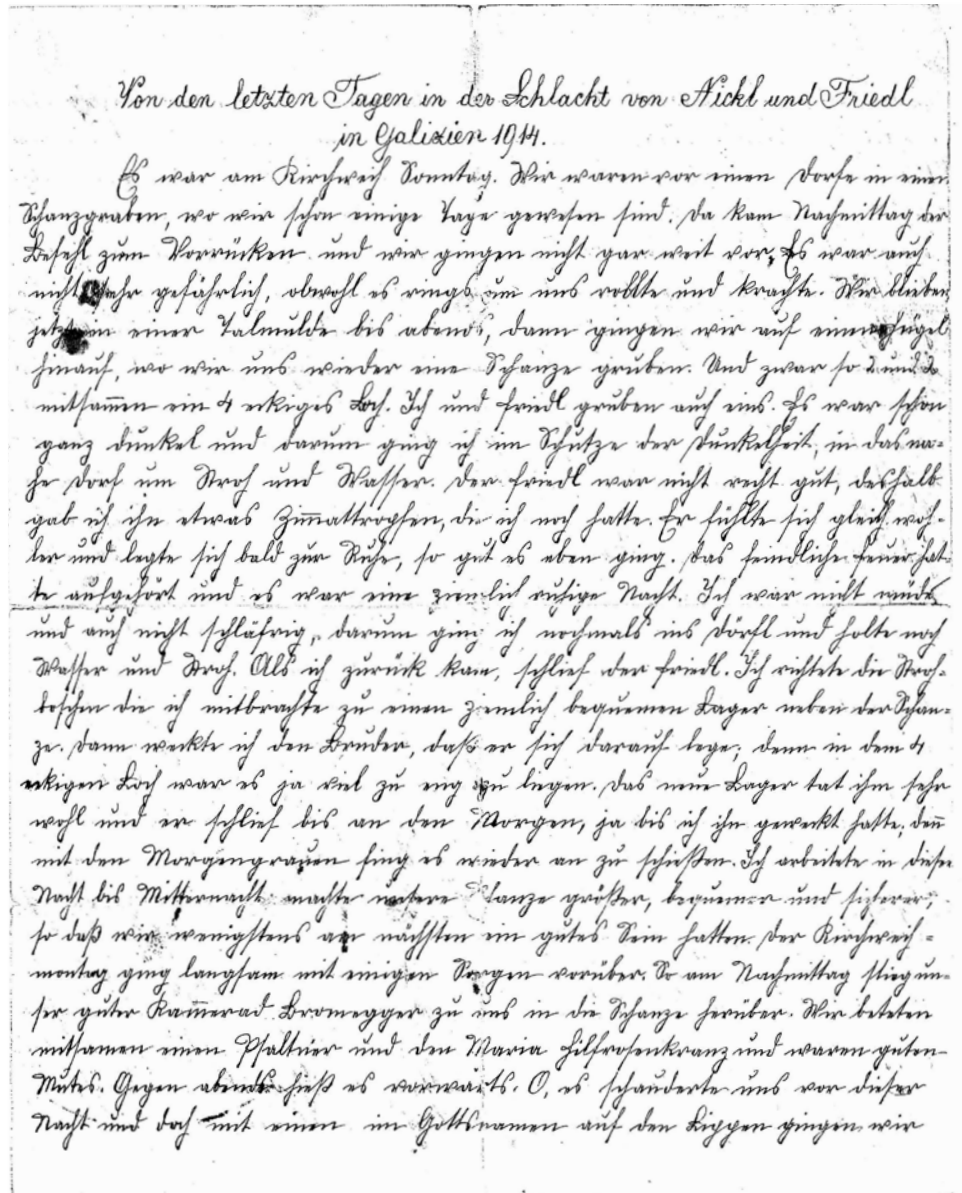 Von den letzten Tagen in der Schlacht von Nickl und Friedl
in Galizien 1914.
Es war am Kirchweih Sonntag. Wir waren vor einen Dorfe in einen
Schanzgraben, wo wir schon einige Tage gewesen sind. Da kam Nachmittag der
Befehl zum Vorrücken und wir gingen nicht gar weit vor, Es war auch
nicht sehr gefährlich, obwohl es rings um uns rollte und krachte. Wir blieben
jetzt in einer Talmulde bis abends, dann gingen wir auf einen Hügel
hinauf, wo wir uns wieder eine Schanze gruben. Und zwar so 2 und 2
mitsammen ein 4 eckiges Loch. Ich und Friedl gruben auch eins. Es war schon
ganz dunkel und darum ging ich im Schutze der Dunkelheit, in das na-
he Dorf um Stroh und Wasser. Der Friedl war nicht recht gut, deshalb
gab ich ihn etwas Zim̄attropfen, die ich noch hatte. Er fühlte sich gleich woh-
ler und legte sich bald zur Ruhe, so gut es eben ging. Das feindliche Feuer hat-
te aufgehört und es war eine ziemlich ruhige Nacht. Ich war nicht müde
und auch nicht schläfrig, darum ging ich nochmals ins Dörfl und holte noch
Wasser und Stroh. Als ich zurück kam, schlief der Friedl. Ich richtete die Stroh-
boschen die ich mitbrachte zu einen ziemlich bequemen Lager neben der Schan-
ze. Dann weckte ich den Bruder, daß er sich darauf lege; denn in dem 4
eckigen Loch war es ja viel zu eng zu liegen. Das neue Lager tat ihm sehr
wohl und er schlief bis an den Morgen, ja bis ich ihn geweckt hatte; den̄
mit den Morgengrauen fing es wieder an zu schießen. Ich arbeitete in dieser
Nacht bis Mitternacht machte unsere Schanze größer, bequemer und sicherer,
so daß wir wenigstens am nächsten ein gutes Sein hatten. Der Kirchweih-
montag ging langsam mit einigen Sorgen vorüber. So am Nachmittag stieg un-
ser guter Kam̄erad Bromegger zu uns in die Schanze herüber. Wir beteten
mitsamen einen Psaltner und den Maria hilfrosenkranz und waren guten
Mutes. Gegen abends hieß es vorwärts. O, es schauderte uns vor dieser
Nacht und doch mit einen im Gottsnamen auf den Lippen gingen wir